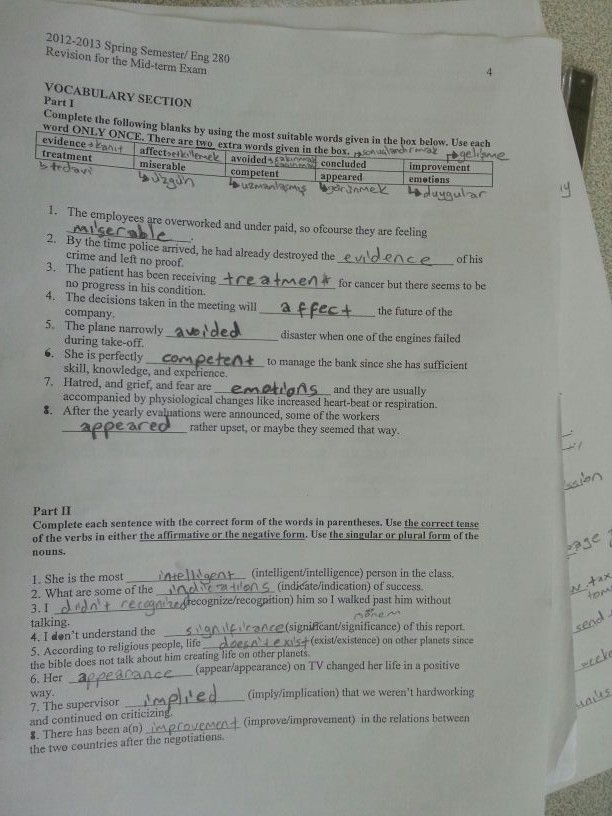 2012-2013 Spring Semester/ Eng 280
Revision for the Mid-term Exam
4
VOCABULARY SECTION
Part I
Complete the following blanks by using the most suitable words given in the box below. Use each
word ONLY ONCE. There are two extra words given in the box. → sonuçlandırmak → gelişme
evidence → kanıt affect → etkilemek avoided concluded improvement
treatment miserable competent appeared emotions
↳ tedavi ↳ üzgün ↳ uzmanlaşmış ↳ görünmek ↳ duygular
1. The employees are overworked and under paid, so ofcourse they are feeling
miserable.
2. By the time police arrived, he had already destroyed the evidence of his
crime and left no proof.
3. The patient has been receiving treatment for cancer but there seems to be
no progress in his condition.
4. The decisions taken in the meeting will affect the future of the
company.
5. The plane narrowly avoided disaster when one of the engines failed
during take-off.
6. She is perfectly competent to manage the bank since she has sufficient
skill, knowledge, and experience.
7. Hatred, and grief, and fear are emotions and they are usually
accompanied by physiological changes like increased heart-beat or respiration.
8. After the yearly evaluations were announced, some of the workers
appeared rather upset, or maybe they seemed that way.
Part II
Complete each sentence with the correct form of the words in parentheses. Use the correct tense
of the verbs in either the affirmative or the negative form. Use the singular or plural form of the
nouns.
1. She is the most intelligent (intelligent/intelligence) person in the class.
2. What are some of the indications (indicate/indication) of success.
3. I didn't recognized (recognize/recognition) him so I walked past him without
talking.
4. I don't understand the significance (significant/significance) of this report.
5. According to religious people, life doesn't exist (exist/existence) on other planets since
the bible does not talk about him creating life on other planets.
6. Her appearance (appear/appearance) on TV changed her life in a positive
way.
7. The supervisor implied (imply/implication) that we weren't hardworking
and continued on criticizing.
8. There has been a(n) improvement (improve/improvement) in the relations between
the two countries after the negotiations.
ssion
page
tax
send